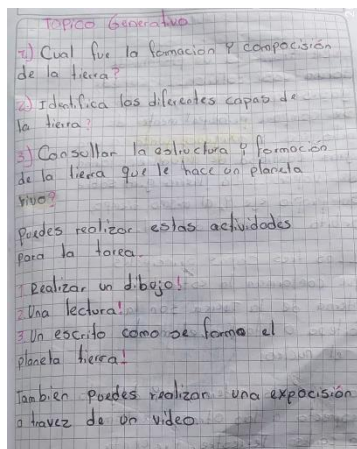 Topico Generativo
1) Cual fue la formacion y composición
de la tierra?
2) Identifica las diferentes capas de
la tierra?
3) Consultar la estructura y formacion
de la tierra que le hace un planeta
vivo?
puedes realizar estas actividades
para la tarea.
1 Realizar un dibujo!
2 Una lectura!
3 Un escrito como se forma el
planeta tierra!
Tambien puedes realizar una expocisión
a travez de un video